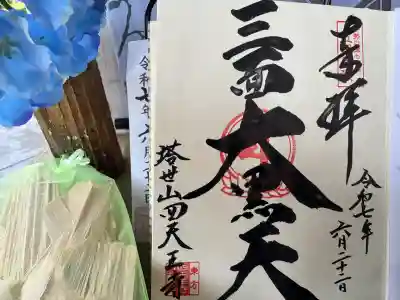 奉拝
令和七年
六月二十二日
三面大黒天
塔世山四天王寺
令和七年六月